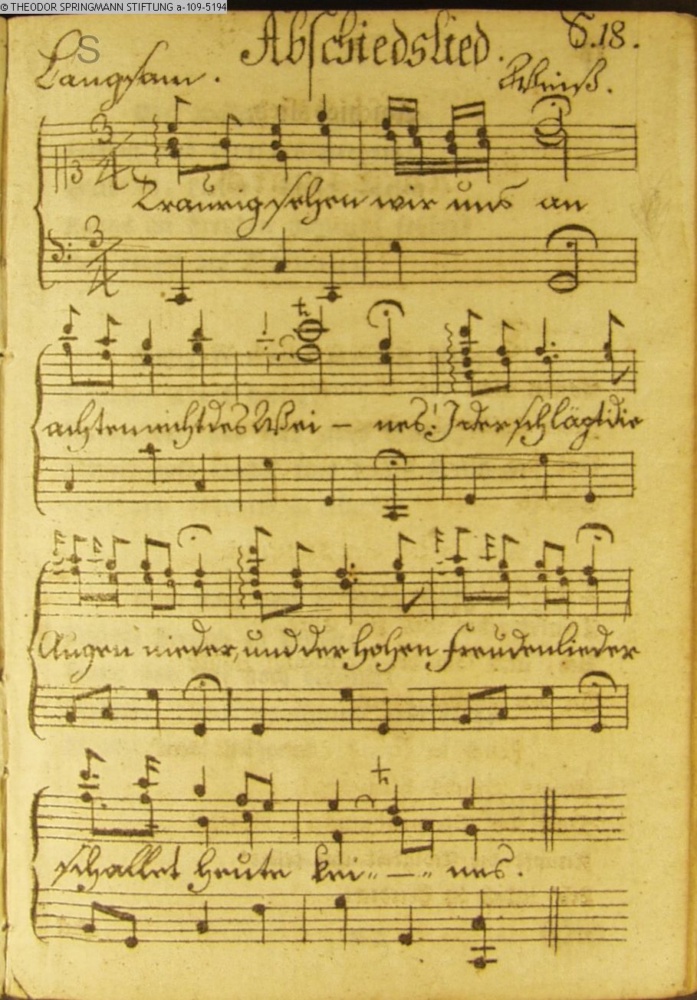 © THEODOR SPRINGMANN STIFTUNG a-109-5194
Abschiedslied. S. 18.
S
Langsam. Weiß.
3/4
Traurig sehen wir uns an
3/4
achten nicht des Wei - nes! Jeder schlägt die
Augen nieder, und der hohen Freudenlieder
schallet heute kei - nes.